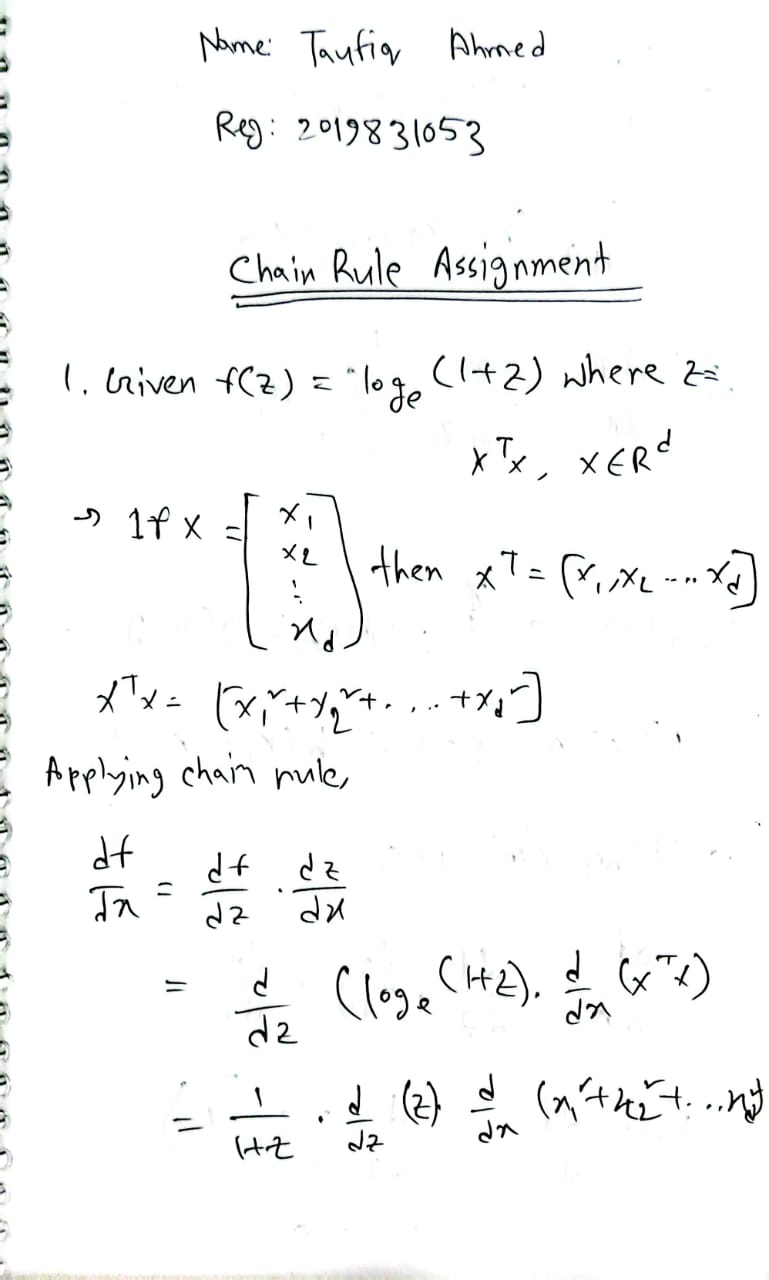 Name: Taufiq Ahmed
Reg: 2019831053
Chain Rule Assignment
1. Given f(z) = logₑ (1+z) where z=
xᵀx, x∈Rᵈ
→ If x = [x₁ x₂ ⋮ x_d] then xᵀ = [x₁, x₂ .... x_d]
xᵀx = [x₁² + x₂² + .... + x_d²]
Applying chain rule,
df/dx = df/dz . dz/dx
= d/dz (logₑ (1+z). d/dx (xᵀx)
= 1/1+z . d/dz (z) d/dx (x₁² + x₂² + ... x_d²)